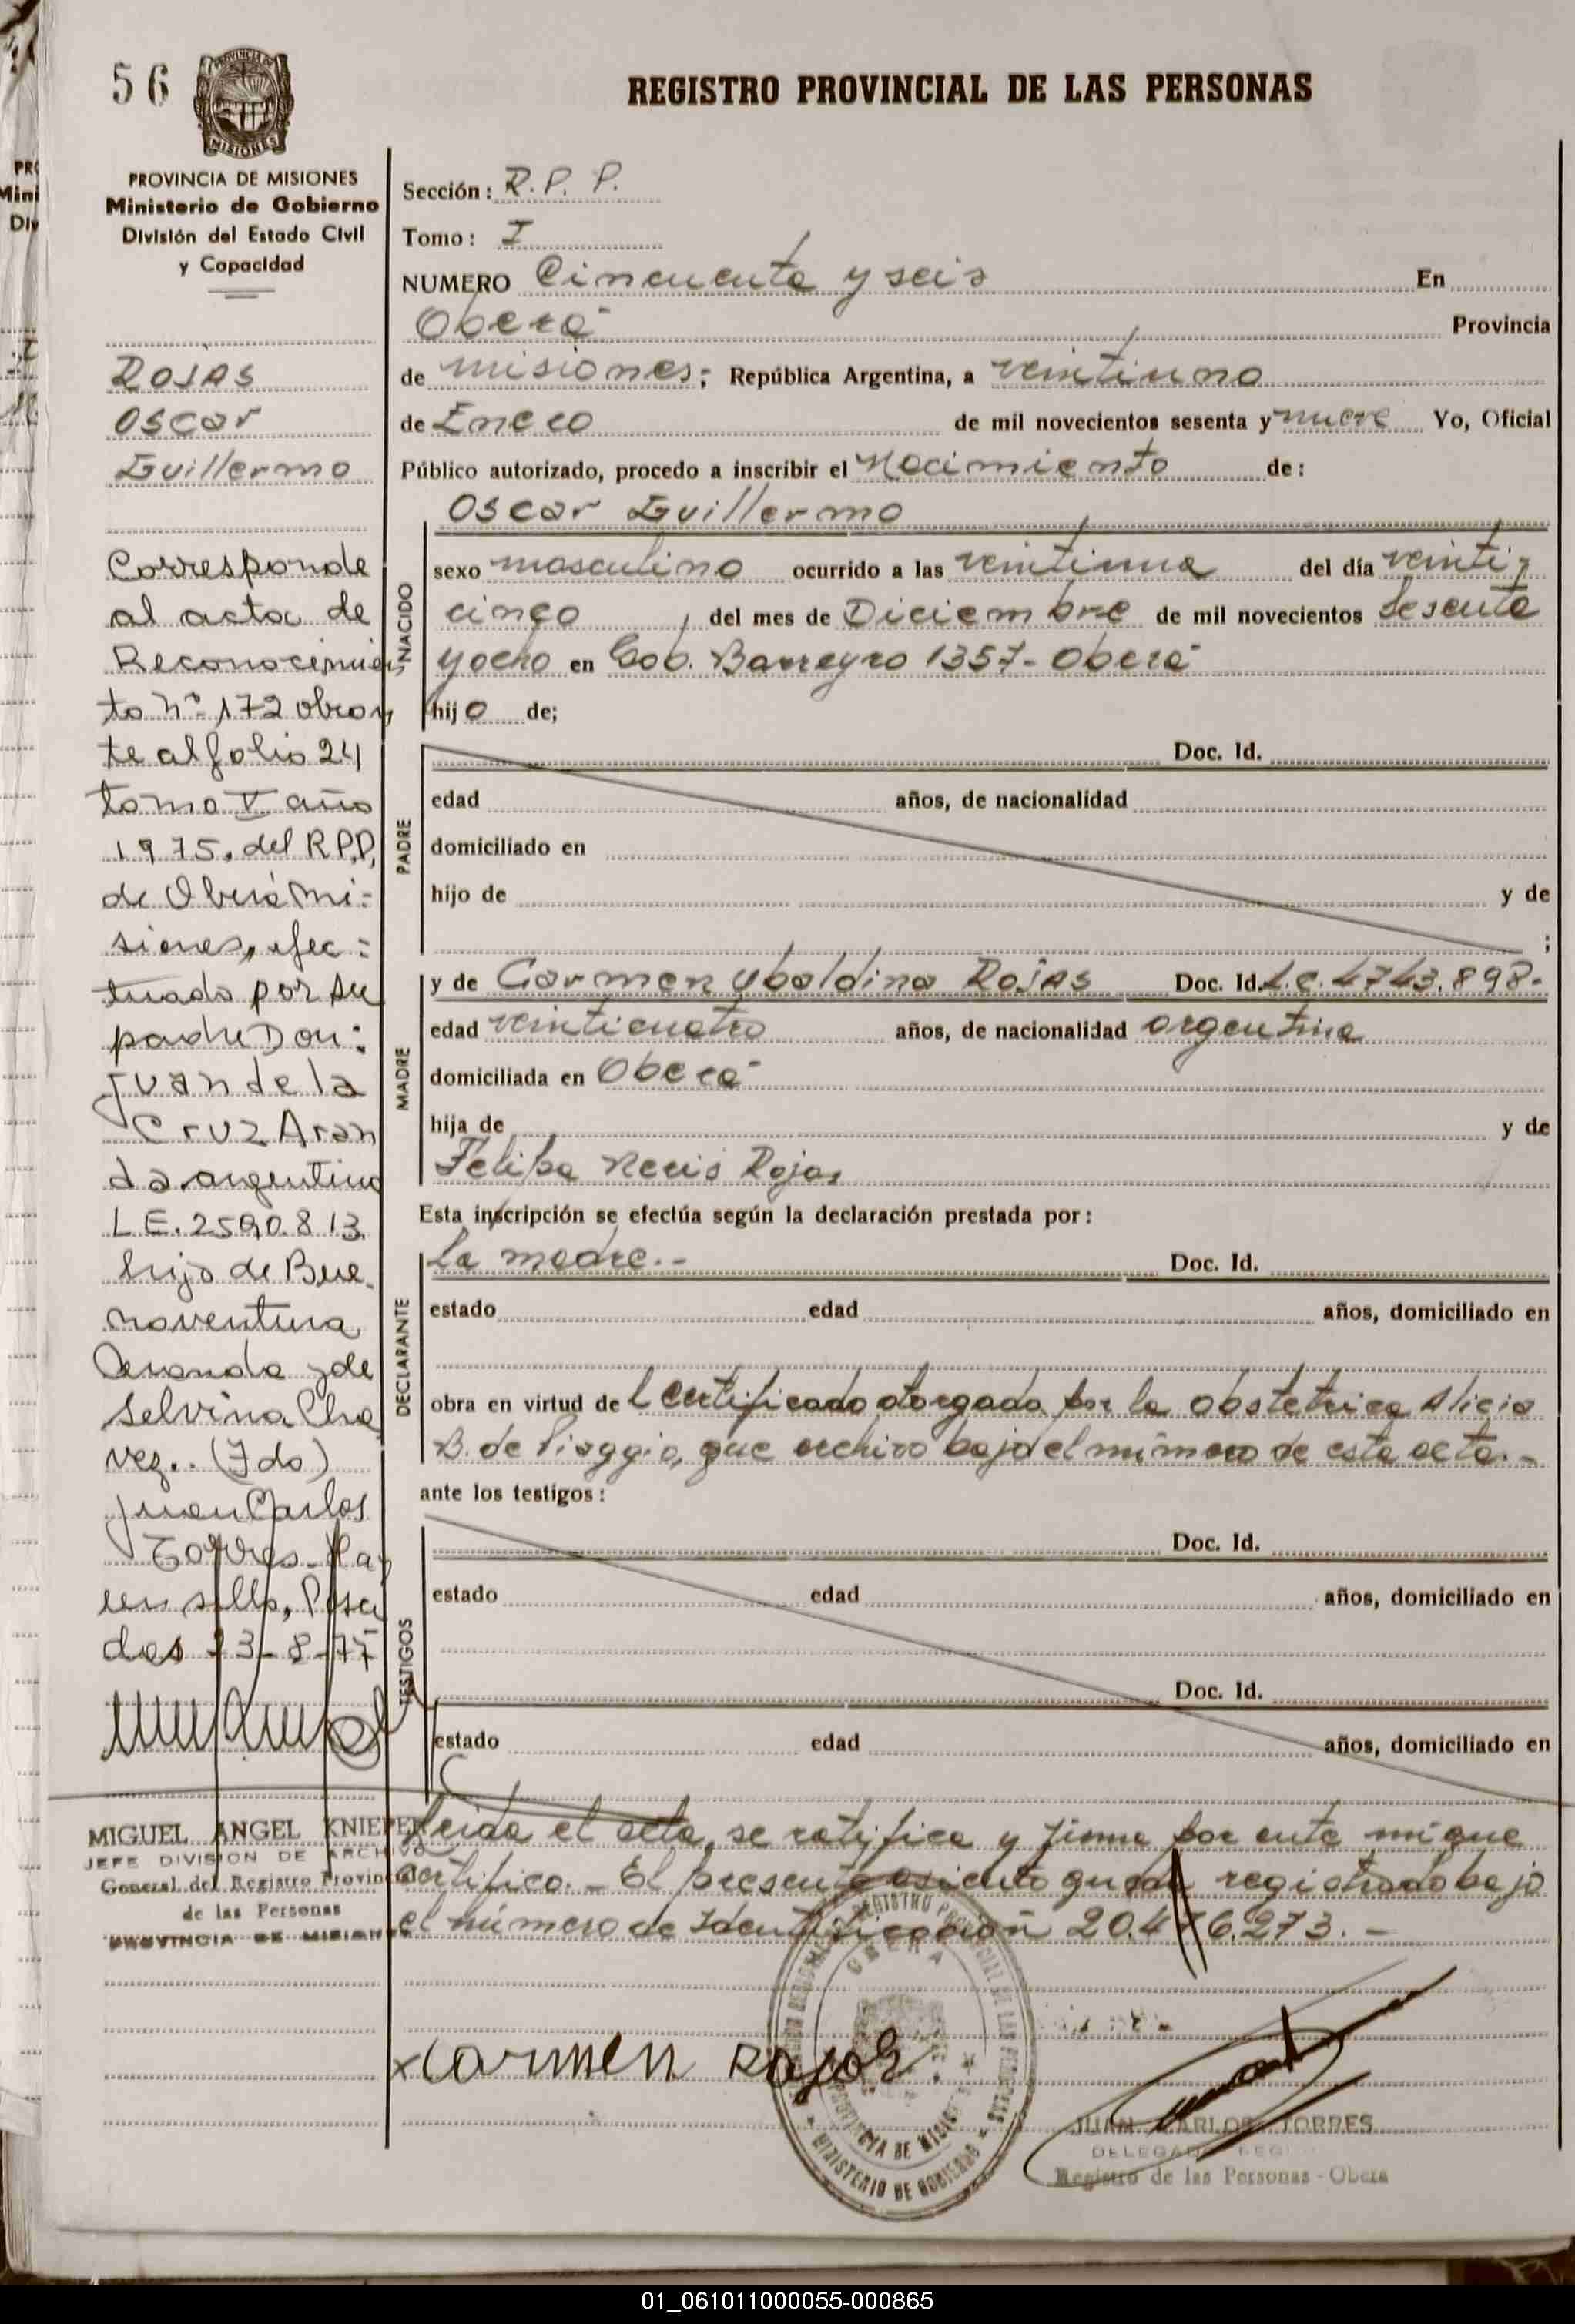 56
PROVINCIA DE MISIONES
MISIONES
PROVINCIA DE MISIONES
Ministerio de Gobierno
División del Estado Civil
y Capacidad
ROJAS
Oscar
Guillermo
Corresponde
al acta de
Reconocimien
to Nº 172 obran
te al folio 24
tomo V año
1975, del R.P.P,
de Oberá Mi-
siones, efec=
tuado por su
padre Don:
Juan de la
Cruz Aran
da argentino
L.E. 2590.813
hijo de Bue
naventura
Aranda y de
Selvina Cha
vez.. (Fdo)
Juan Carlos
Torres. Hay
un sello, Posa
das 13-8-75
MIGUEL ANGEL KNIEPER
JEFE DIVISION DE ARCHIVO
General del Registro Provincial
de las Personas
PROVINCIA DE MISIONES
REGISTRO PROVINCIAL DE LAS PERSONAS
Sección: R.P. P.
Tomo: I
NUMERO Cincuenta y seis En
Oberá Provincia
de misiones; República Argentina, a veintiuno
de Enero de mil novecientos sesenta y nueve Yo, Oficial
Público autorizado, procedo a inscribir el Nacimiento de:
Oscar Guillermo
NACIDO
sexo masculino ocurrido a las veintiuna del día veinti
cinco del mes de Diciembre de mil novecientos Sesenta
y ocho en Gob. Barreyro 1357- Oberá
hijo de;
PADRE
Doc. Id.
edad años, de nacionalidad
domiciliado en
hijo de y de
;
MADRE
y de Carmen Ubaldina ROJAS Doc. Id. L.C. 4743.898-
edad veinticuatro años, de nacionalidad argentina
domiciliada en Oberá
hija de y de
Felipa Neris Rojas
Esta inscripción se efectúa según la declaración prestada por:
DECLARANTE
La madre.- Doc. Id.
estado edad años, domiciliado en
obra en virtud del Certificado otorgado por la obstetrica Alicia
B. de Piaggio, que archivo bajo el número de esta acta.-
ante los testigos:
TESTIGOS
Doc. Id.
estado edad años, domiciliado en
Doc. Id.
estado edad años, domiciliado en
Leida el acta, se ratifica y firma por ante mi que
certifico.- El presente asiento queda registrado bajo
el número de Identificación 20.476.273.-
Carmen Rojas
OBERA
PROVINCIA DE MISIONES
MINISTERIO DE GOBIERNO
JUAN CARLOS TORRES
Registro de las Personas - Obera
01_061011000055-000865